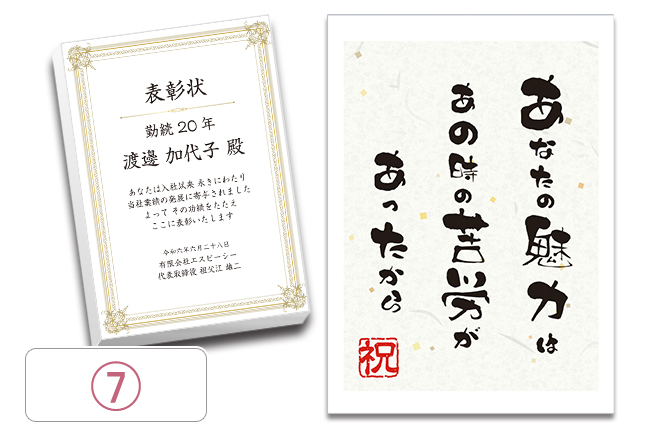 表彰状
勤続20年
渡邊 加代子 殿
あなたは入社以来 永きにわたり
当社業績の発展に寄与されました
よって その功績をたたえ
ここに表彰いたします
令和六年六月二十八日
有限会社エスピーシー
代表取締役 祖父江 雄二
⑦
あなたの魅力は
あの時の苦労が
あったから
祝